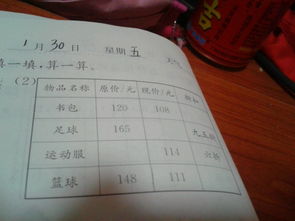 1月30日 星期五
填一填,算一算。
(2)
物品名称 原价/元 现价/元 折扣
书包 120 108
足球 165 九五折
运动服 114 六折
篮球 148 111